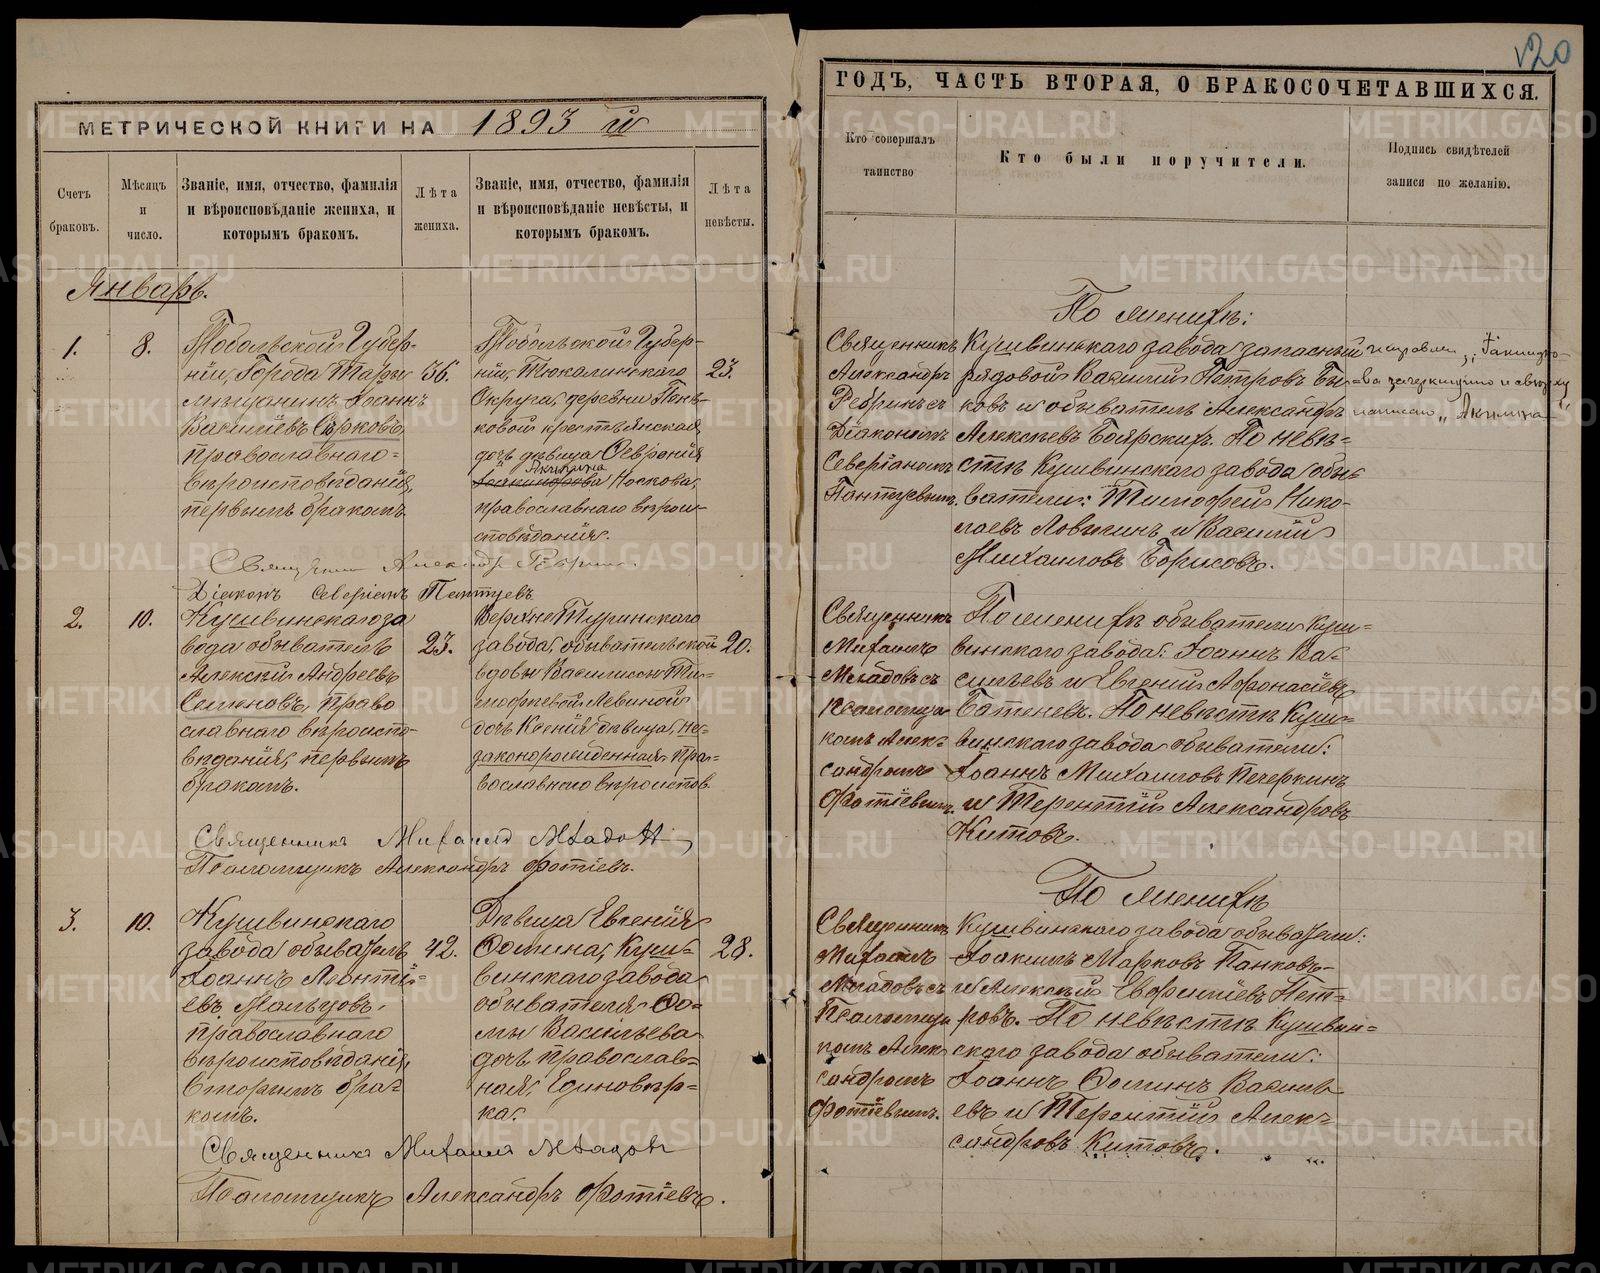 120
МЕТРИЧЕСКОЙ КНИГИ НА 1893 й
ГОДЪ, ЧАСТЬ ВТОРАЯ, О БРАКОСОЧЕТАВШИХСЯ.
Счетъ
браковъ.
Мѣсяцъ
и
число.
Званіе, имя, отчество, фамилія
и вѣроисповѣданіе жениха, и
которымъ бракомъ.
Лѣта
жениха.
Званіе, имя, отчество, фамилія
и вѣроисповѣданіе невѣсты, и
которымъ бракомъ.
Лѣта
невѣсты.
Кто совершалъ
таинство
Кто были поручители.
Подпись свидѣтелей
записи по желанію.
Январь.
1.
8.
Тобольской Губер-
ніи, Города Тары
мѣщанинъ Іоаннъ
Василіевъ
православнаго
вѣроисповѣданія,
первымъ бракомъ.
36.
Тобольской Губер-
ніи, Тюкалинскаго
Округа, деревни Пань-
ковой крестьянская
дочь дѣвица Феврония
Акинѳина
Носкова,
православнаго вѣрои-
сповѣданія.
23.
Священникъ
Александръ
Ребринъ съ
Діакономъ
Северіаномъ
По женихѣ:
Кушвинскаго завода запасный
рядовой Василій Петровъ Бы-
ковъ и обыватель Александръ
Алексѣевъ Боярскихъ. По невѣ-
стѣ Кушвинскаго завода обы-
ватели: Тимофей Нико-
лаевъ Ловыгинъ и Василій
Михаиловъ Борисовъ.
зачеркнуто и сверху
написано „Акинѳина“
Священникъ Александръ Ребринъ
Діаконъ Северіанъ
2.
10.
Кушвинскаго за
вода обыватель
Алексій Андреевъ
Семеновъ, право
славнаго вѣроиспо-
вѣданія, первымъ
бракомъ.
23.
Верхне Туринскаго
завода, обывательской
вдовы Василисы Ти-
мофеевой Левиной
дочь Ксенія дѣвица, не-
законорожденная, пра-
вославнаго вѣроисповѣд.
20.
Священникъ
Михаилъ
Мѣдовъ съ
псаломщи-
комъ Алек-
сандромъ
Фотіевымъ.
По женихѣ обыватели Куш-
винскаго завода: Іоаннъ Ва-
сильевъ и Евгеній Афонасіевъ
Батеневъ. По невѣстѣ Куш-
винскаго завода обыватели:
Іоаннъ Михаиловъ Печеркинъ
и Терентій Александровъ
Китовъ.
Священникъ Михаилъ
Псаломщикъ Александръ Фотіевъ.
3.
10.
Кушвинскаго
завода обыватель
Іоаннъ Леонті-
евъ Мальцовъ,
православнаго
вѣроисповѣданія,
вторымъ бра-
комъ.
42.
Дѣвица Евгенія
Фомина, Куш-
винскаго завода
обывателя Фо-
мы Васильева
дочь православ-
ная, Единовѣр-
ка.
28.
Священникъ
Михаилъ
съ
Псаломщи
комъ Алек
сандромъ
Фотіевымъ.
По женихѣ
Кушвинскаго завода обыватели:
Іоакимъ Марковъ Панковъ
и Алексѣй Евфиміевъ Пет-
ровъ. По невѣстѣ Кушвин-
скаго завода обыватели:
Іоаннъ Фоминъ Василь-
евъ и Терентій Алек-
сандровъ Китовъ.
Священникъ Михаилъ
Псаломщикъ Александръ Фотіевъ.
METRIKI.GASO-URAL.RU